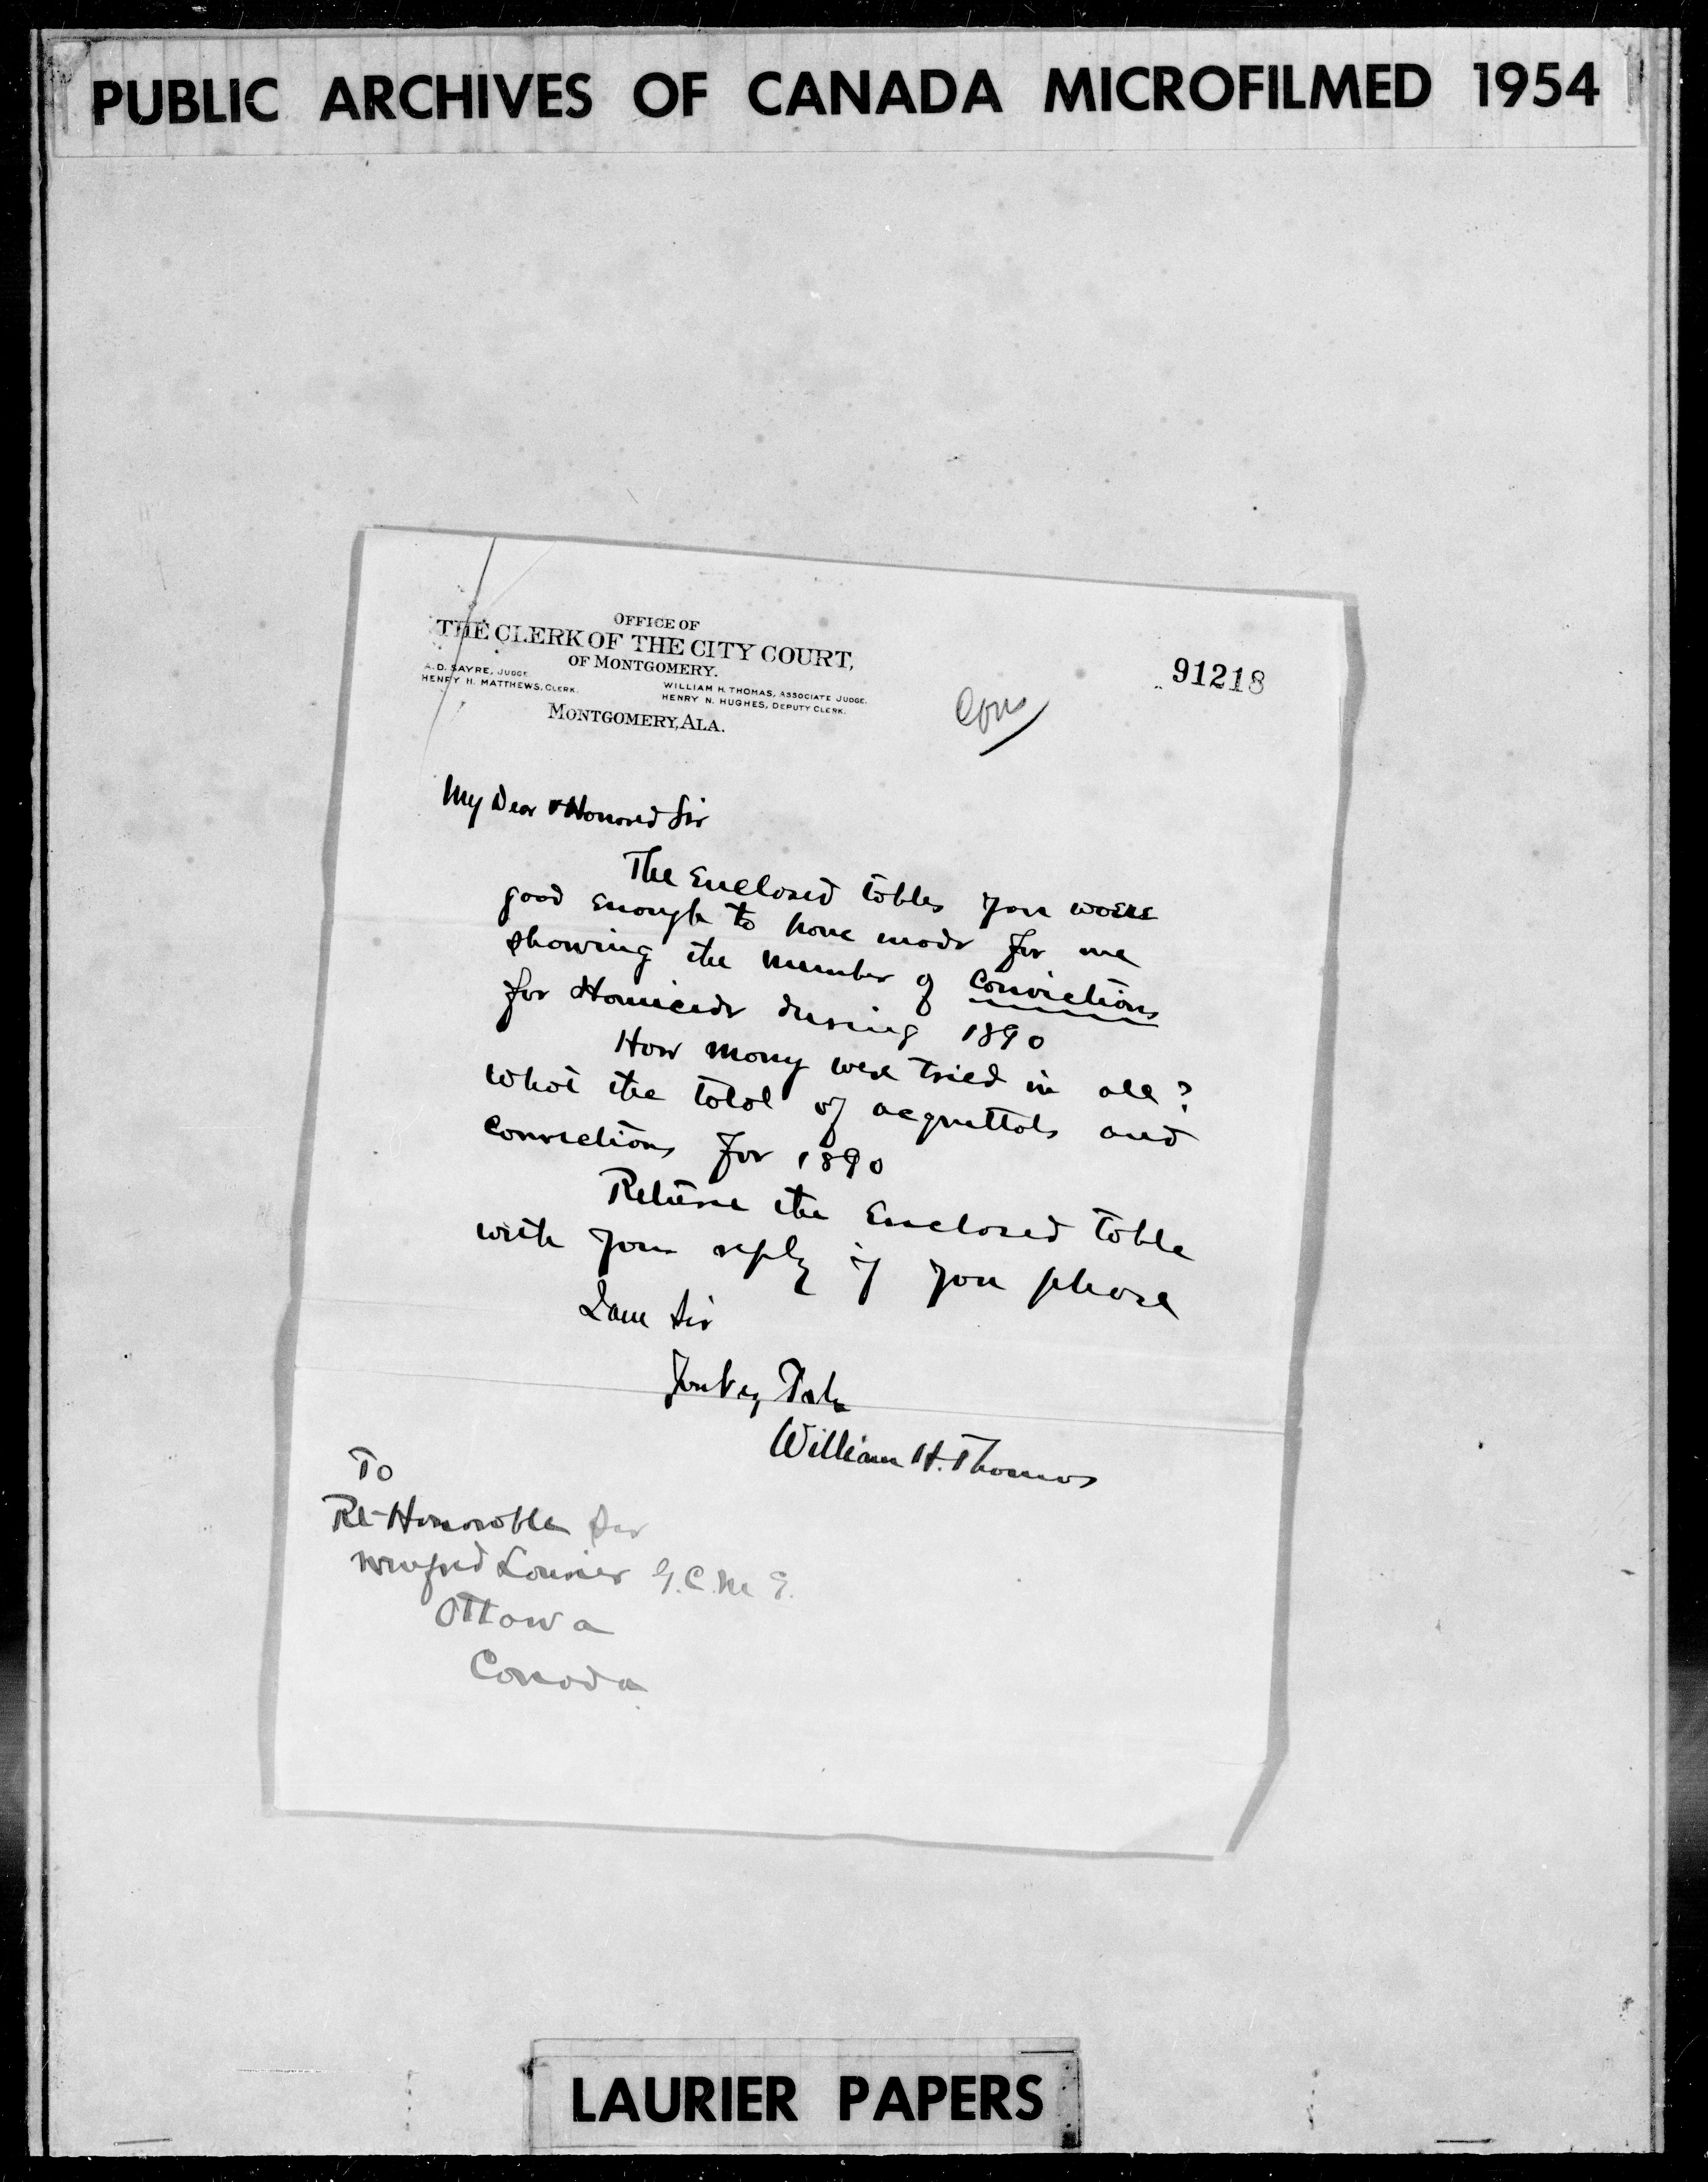 PUBLIC ARCHIVES OF CANADA MICROFILMED 1954
OFFICE OF
THE CLERK OF THE CITY COURT,
OF MONTGOMERY.
A. D. SAYRE, JUDGE
WILLIAM H. THOMAS, ASSOCIATE JUDGE.
HENRY H. MATTHEWS, CLERK.
HENRY N. HUGHES, DEPUTY CLERK.
MONTGOMERY, ALA.
91218
My Dear & Honored Sir
The Enclosed tables you were
good enough to have made for me
showing the number of convictions
for Homicide during 1890
How many were tried in all?
What the total of acquittals and
convictions for 1890
Return the Enclosed table
with your reply if you please
I am Sir
William H. Thomas
To
Rt-Honorable Sir
Wilfred Laurier G.C.M.G.
Ottawa
Canada
LAURIER PAPERS